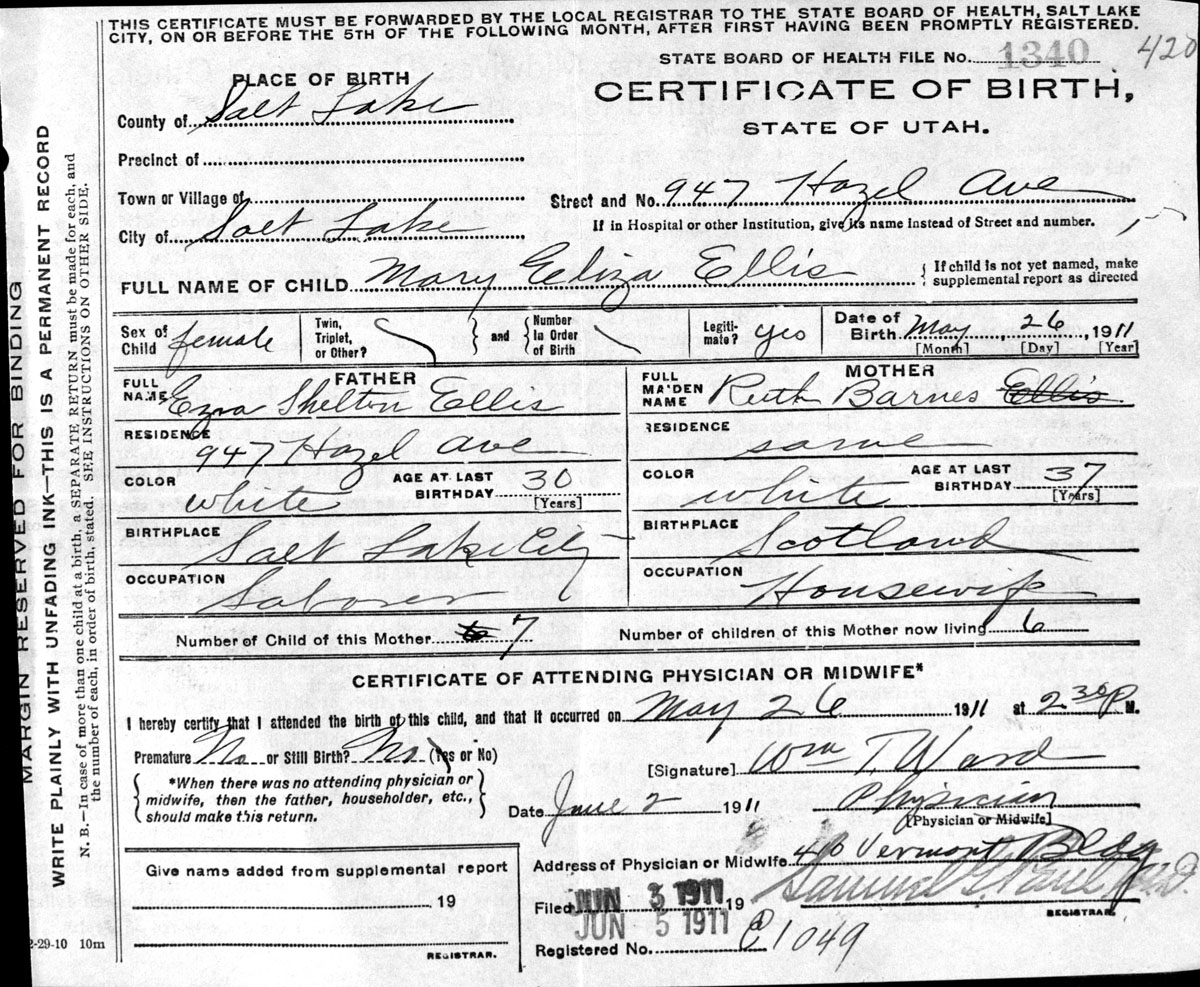 THIS CERTIFICATE MUST BE FORWARDED BY THE LOCAL REGISTRAR TO THE STATE BOARD OF HEALTH, SALT LAKE
CITY, ON OR BEFORE THE 5TH OF THE FOLLOWING MONTH, AFTER FIRST HAVING BEEN PROMPTLY REGISTERED.
420
STATE BOARD OF HEALTH FILE No. 1340
PLACE OF BIRTH
CERTIFICATE OF BIRTH,
STATE OF UTAH.
County of Salt Lake
Precinct of
Town or Village of
Street and No. 947 Hazel Ave
City of Salt Lake
If in Hospital or other Institution, give its name instead of Street and number.
FULL NAME OF CHILD Mary Eliza Ellis
If child is not yet named, make
supplemental report as directed
Sex of Child female
Twin, Triplet, or Other?
and
Number in Order of Birth
Legiti-mate? yes
Date of Birth May 26, 1911
[Month] [Day] [Year]
FATHER
FULL NAME Ezra Shelton Ellis
RESIDENCE 947 Hazel Ave
COLOR white
AGE AT LAST BIRTHDAY 30
[Years]
BIRTHPLACE Salt Lake City
OCCUPATION Laborer
MOTHER
FULL MAIDEN NAME Ruth Barnes Ellis
RESIDENCE same
COLOR white
AGE AT LAST BIRTHDAY 37
[Years]
BIRTHPLACE Scotland
OCCUPATION Housewife
Number of Child of this Mother 7
Number of children of this Mother now living 6
CERTIFICATE OF ATTENDING PHYSICIAN OR MIDWIFE*
I hereby certify that I attended the birth of this child, and that it occurred on May 26 1911 at 2 30 P M.
Premature No or Still Birth? No (Yes or No)
[Signature] Wm T. Ward
*When there was no attending physician or
midwife, then the father, householder, etc.,
should make this return.
Date June 2 1911
Physician
[Physician or Midwife]
Address of Physician or Midwife Vermont Bldg
Give name added from supplemental report
19
REGISTRAR.
Filed JUN 3 1911 19
JUN 5 1911
Samuel
REGISTRAR.
Registered No. 1049
2-29-10 10m
MARGIN RESERVED FOR BINDING
WRITE PLAINLY WITH UNFADING INK—THIS IS A PERMANENT RECORD
N. B.—In case of more than one child at a birth, a SEPARATE RETURN must be made for each, and
the number of each, in order of birth, stated. SEE INSTRUCTIONS ON OTHER SIDE.